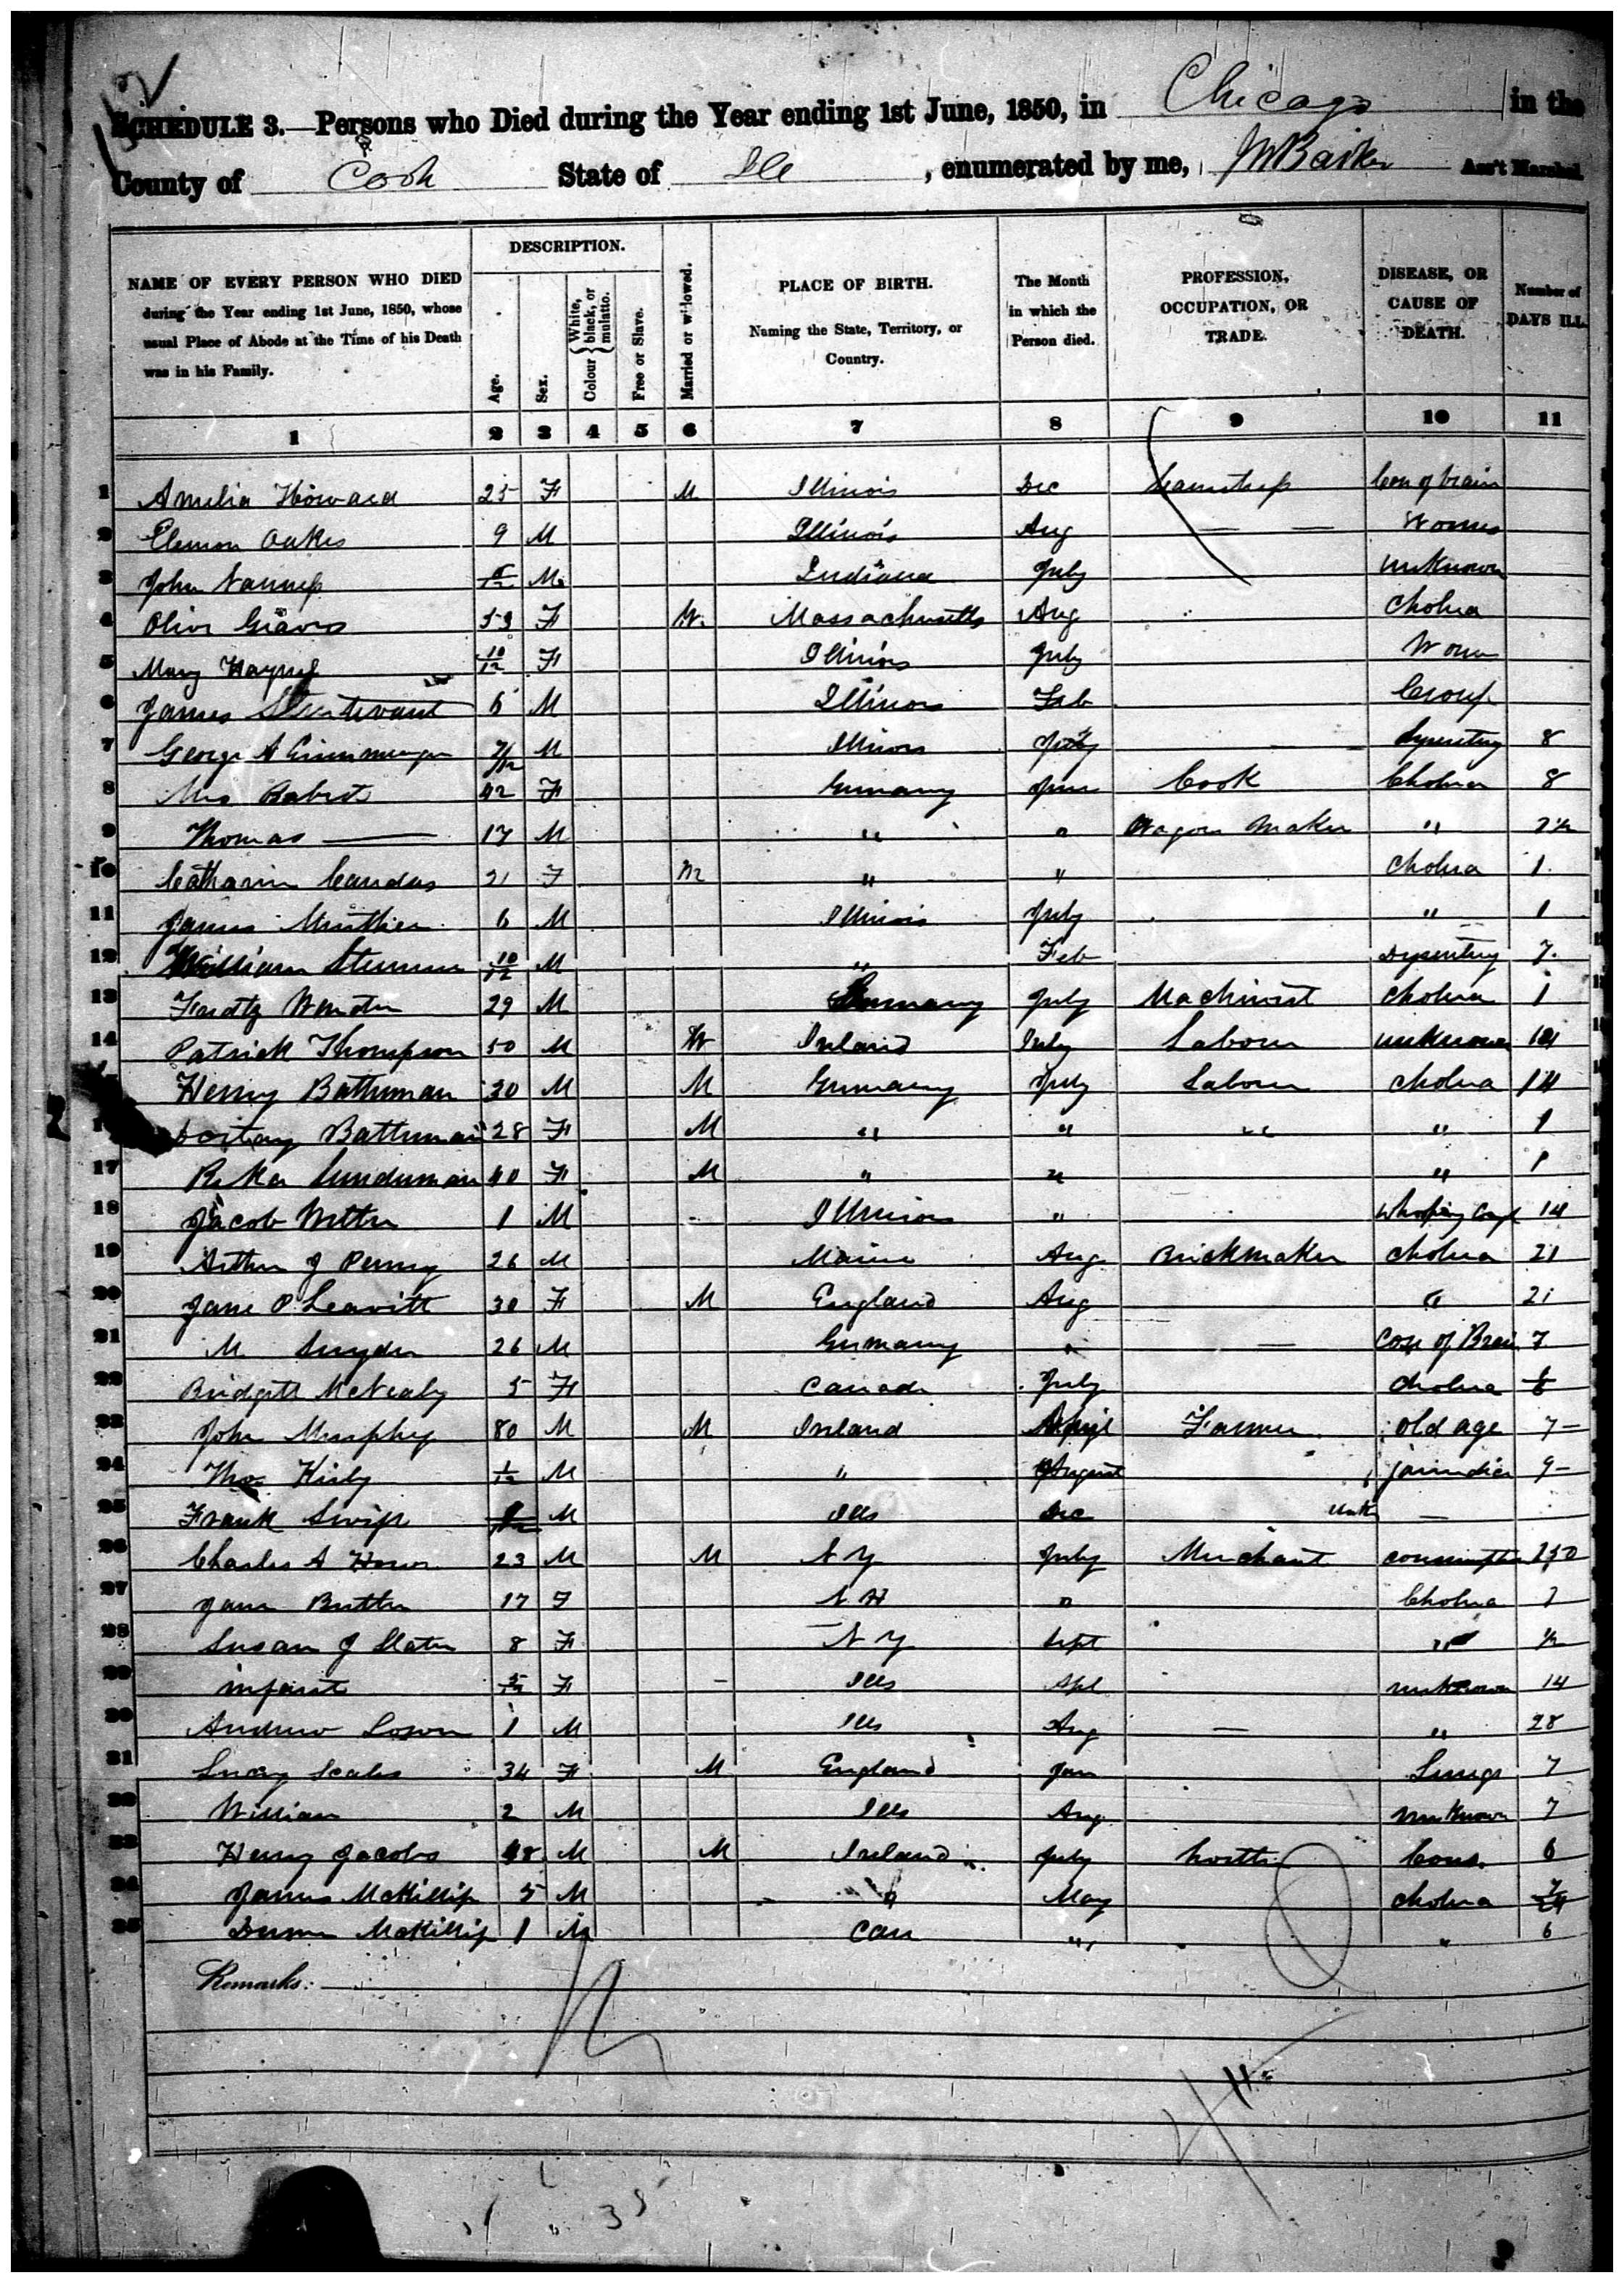 SCHEDULE 3.—Persons who Died during the Year ending 1st June, 1850, in Chicago in the
County of Cook State of Ill, enumerated by me, Ass't Marshal.
NAME OF EVERY PERSON WHO DIED during the Year ending 1st June, 1850, whose usual Place of Abode at the Time of his Death was in his Family.
DESCRIPTION.
Age.
Sex.
Colour { White, black, or mulatto.
Free or Slave.
Married or widowed.
PLACE OF BIRTH. Naming the State, Territory, or Country.
The Month in which the Person died.
PROFESSION, OCCUPATION, OR TRADE.
DISEASE, OR CAUSE OF DEATH.
Number of DAYS ILL.
1 2 3 4 5 6 7 8 9 10 11
1 Amelia Howard 25 F M Illinois Dec Con of brain
2 Oakes 9 M Illinois Aug — — Worms
3 John M. Indiana July unknown
4 Olive Graves 53 F W. Massachusetts Aug Cholera
5 Mary 10/12 F Illinois July Worms
6 James Sturtevant M Illinois Feb Croup
7 George A 7/12 M Illinois July — Dysentery 8
8 Mrs 42 F Germany June Cook Cholera 8
9 Thomas — 17 M " " Wagon Maker "
10 Catharin 21 F M " " Cholera 1.
11 James 6 M Illinois July " 1
12 William 10/12 M " Feb Dysentery 7.
13 29 M Germany July Machinist Cholera 1
14 Patrick Thompson 50 M W Ireland July Labour unknown
15 Henry Bathman 30 M M Germany July Labour Cholera 14
16 28 F M " " " " 1
17 40 F M " " " 1
18 Jacob 1 M Illinois " 14
19 Arthur J Penny 26 M Maine Aug. Brickmaker Cholera 21
20 Jane P. Leavitt 30 F M England Aug " 21
21 M Snyder 26 M Germany " — Con of Brain 7
22 Bridgett McNealy 5 F Canada July Cholera
23 John Murphy 80 M M Ireland April Farmer old age 7—
24 Thos Kirby 1/12 M " August 9—
25 Frank M Ills Dec Unk —
26 Charles A 23 M M N Y July Merchant 250
27 Jane Butler 17 F N H " Cholera
28 Susan J Slater 8 F N Y Sept " 1/2
29 infant F Ills Apl unknown 14
30 Andrew 1 M Ills Aug — " 28
31 Lucy Scales 34 F M England Jan Lungs 7
32 William 2 M Ills Aug. unknown 7
33 Henry Jacobs 48 M M Ireland July Cons. 6
34 James McKillip 5 M " May Cholera
35 McKillip 1 M Can " " 6
Remarks: